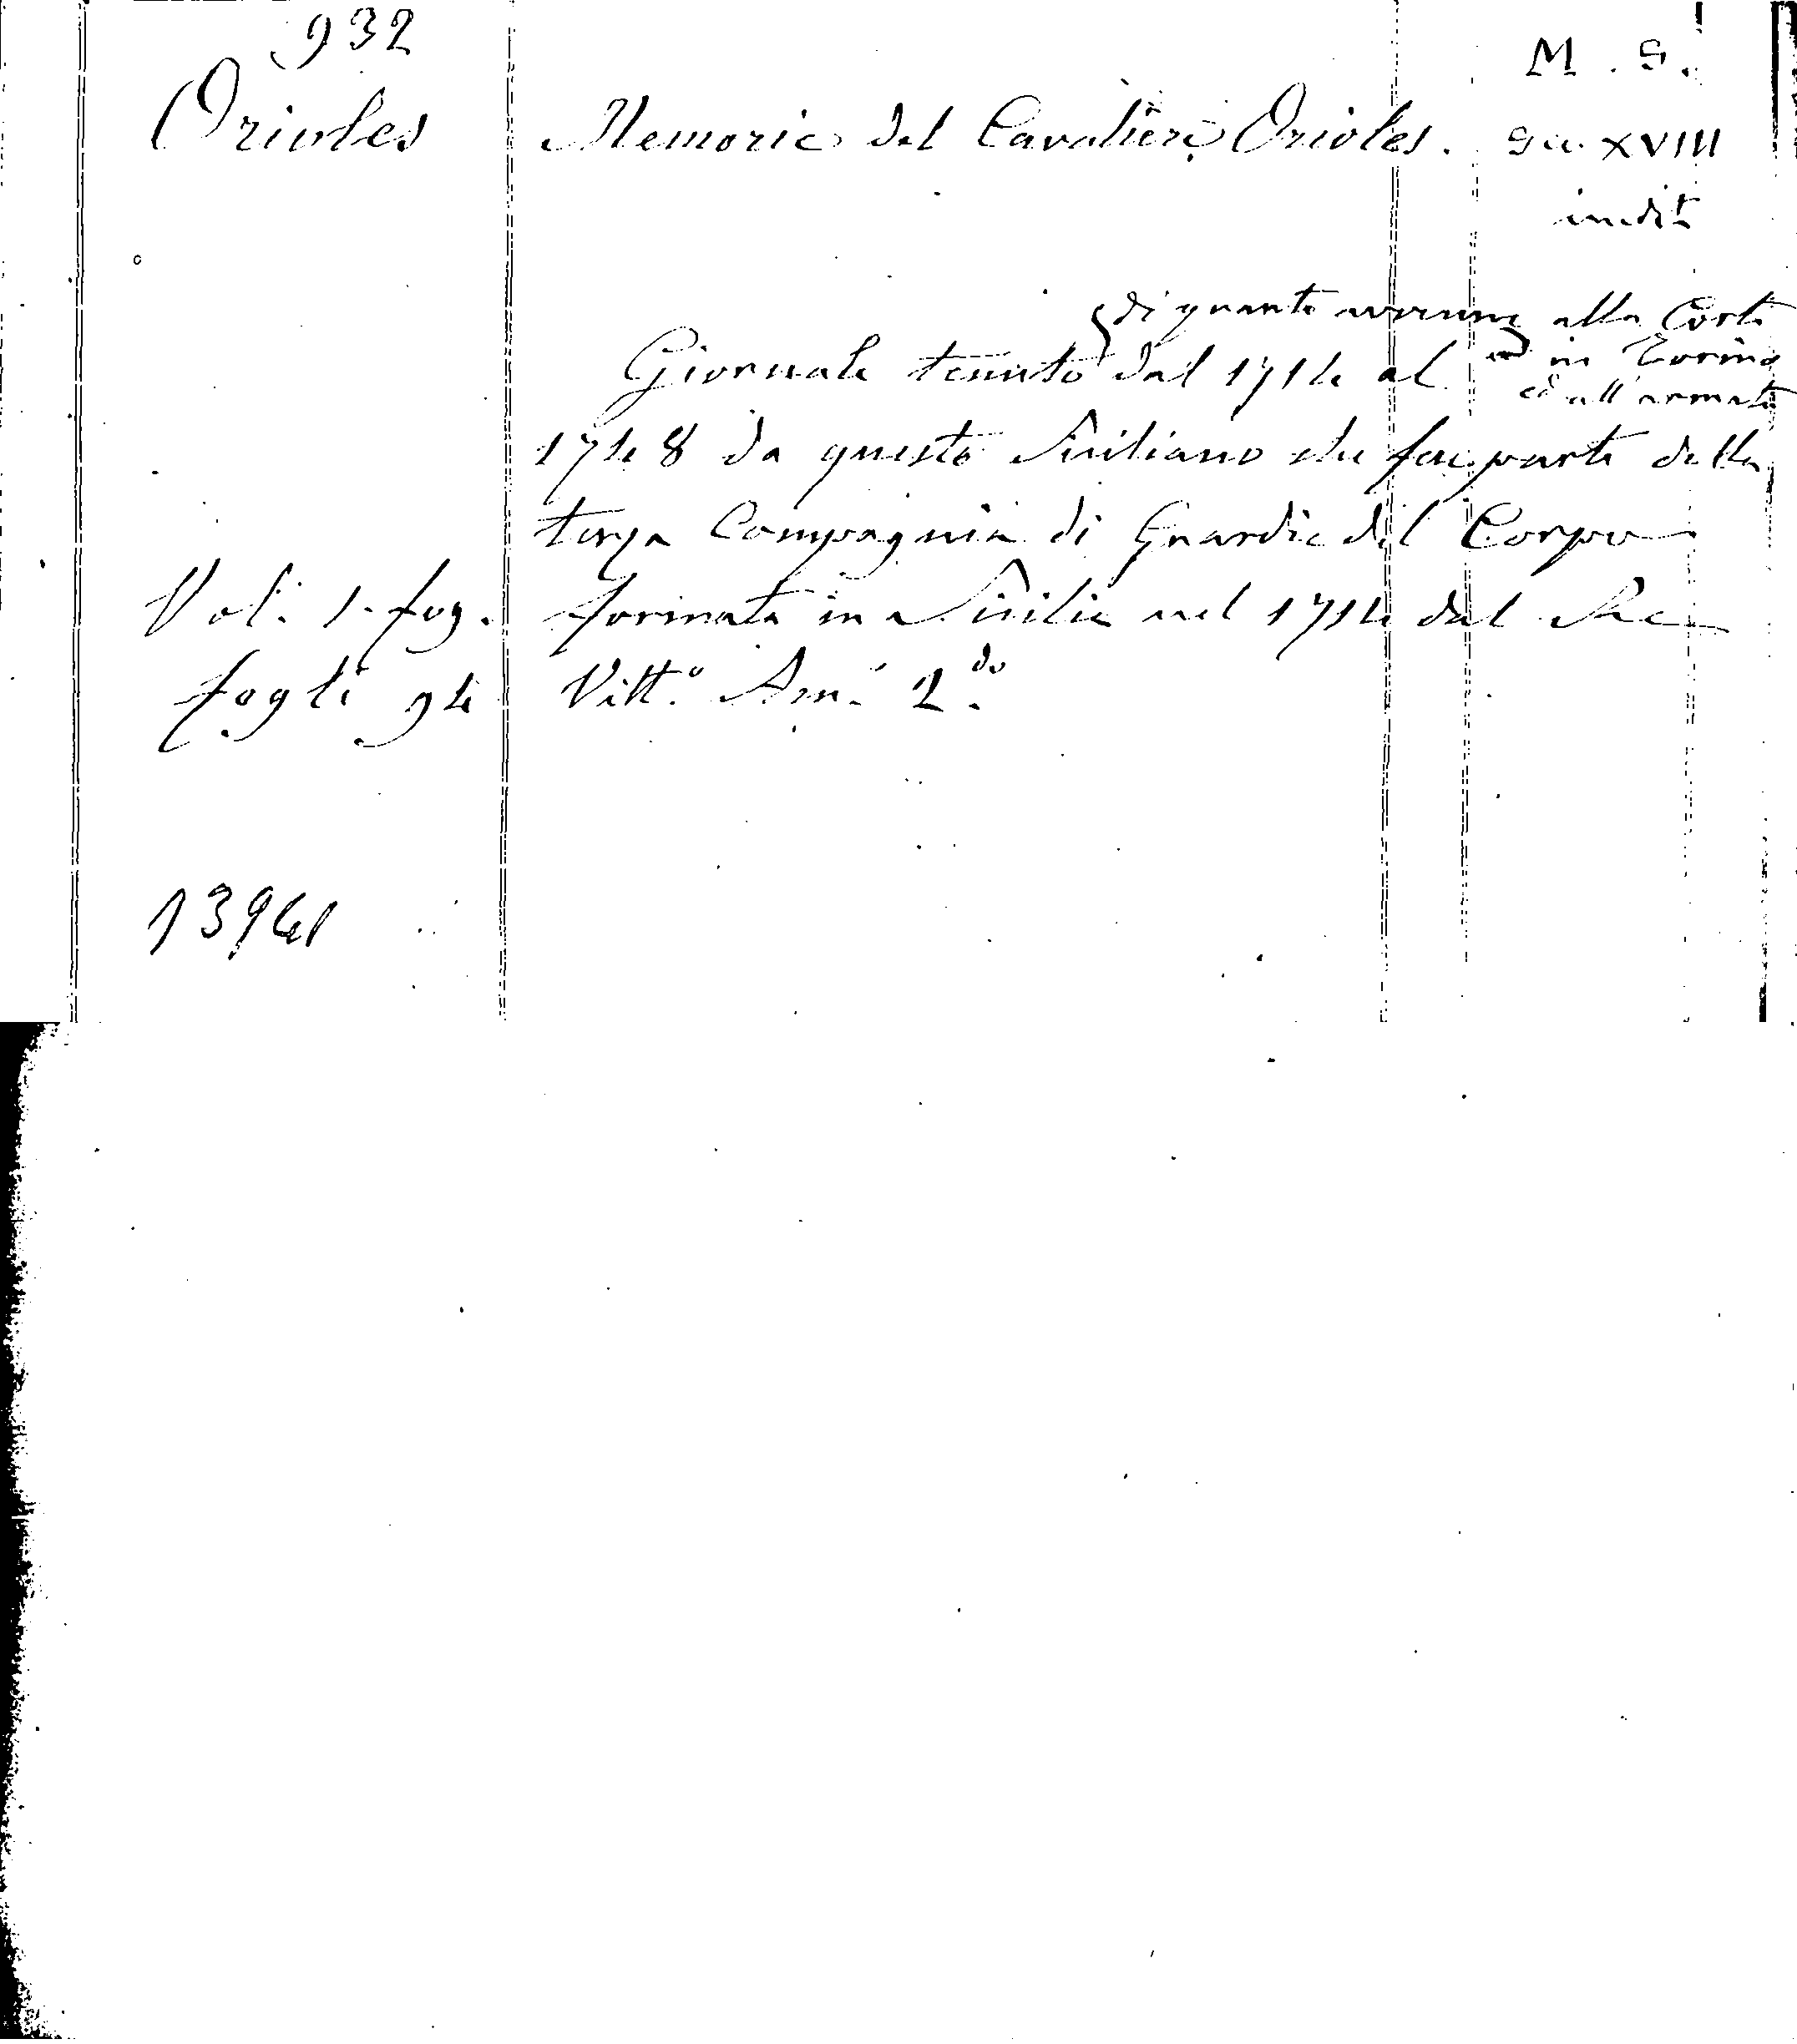 932
M. S.
Orioles
Memorie del Cavaliere Orioles.
Sec. XVIII
inedito
di quanto avvenne alla Corte
in Torino
ed all'armata
Giornale tenuto dal 1714 al
1748 da questo Siciliano che fu parte della
terza Compagnia di Guardie del Corpo
Vol. 1. fog.
formata in Sicilia nel 1714 dal Re
fogli 94
Vitt.º Am. 2.do
13941